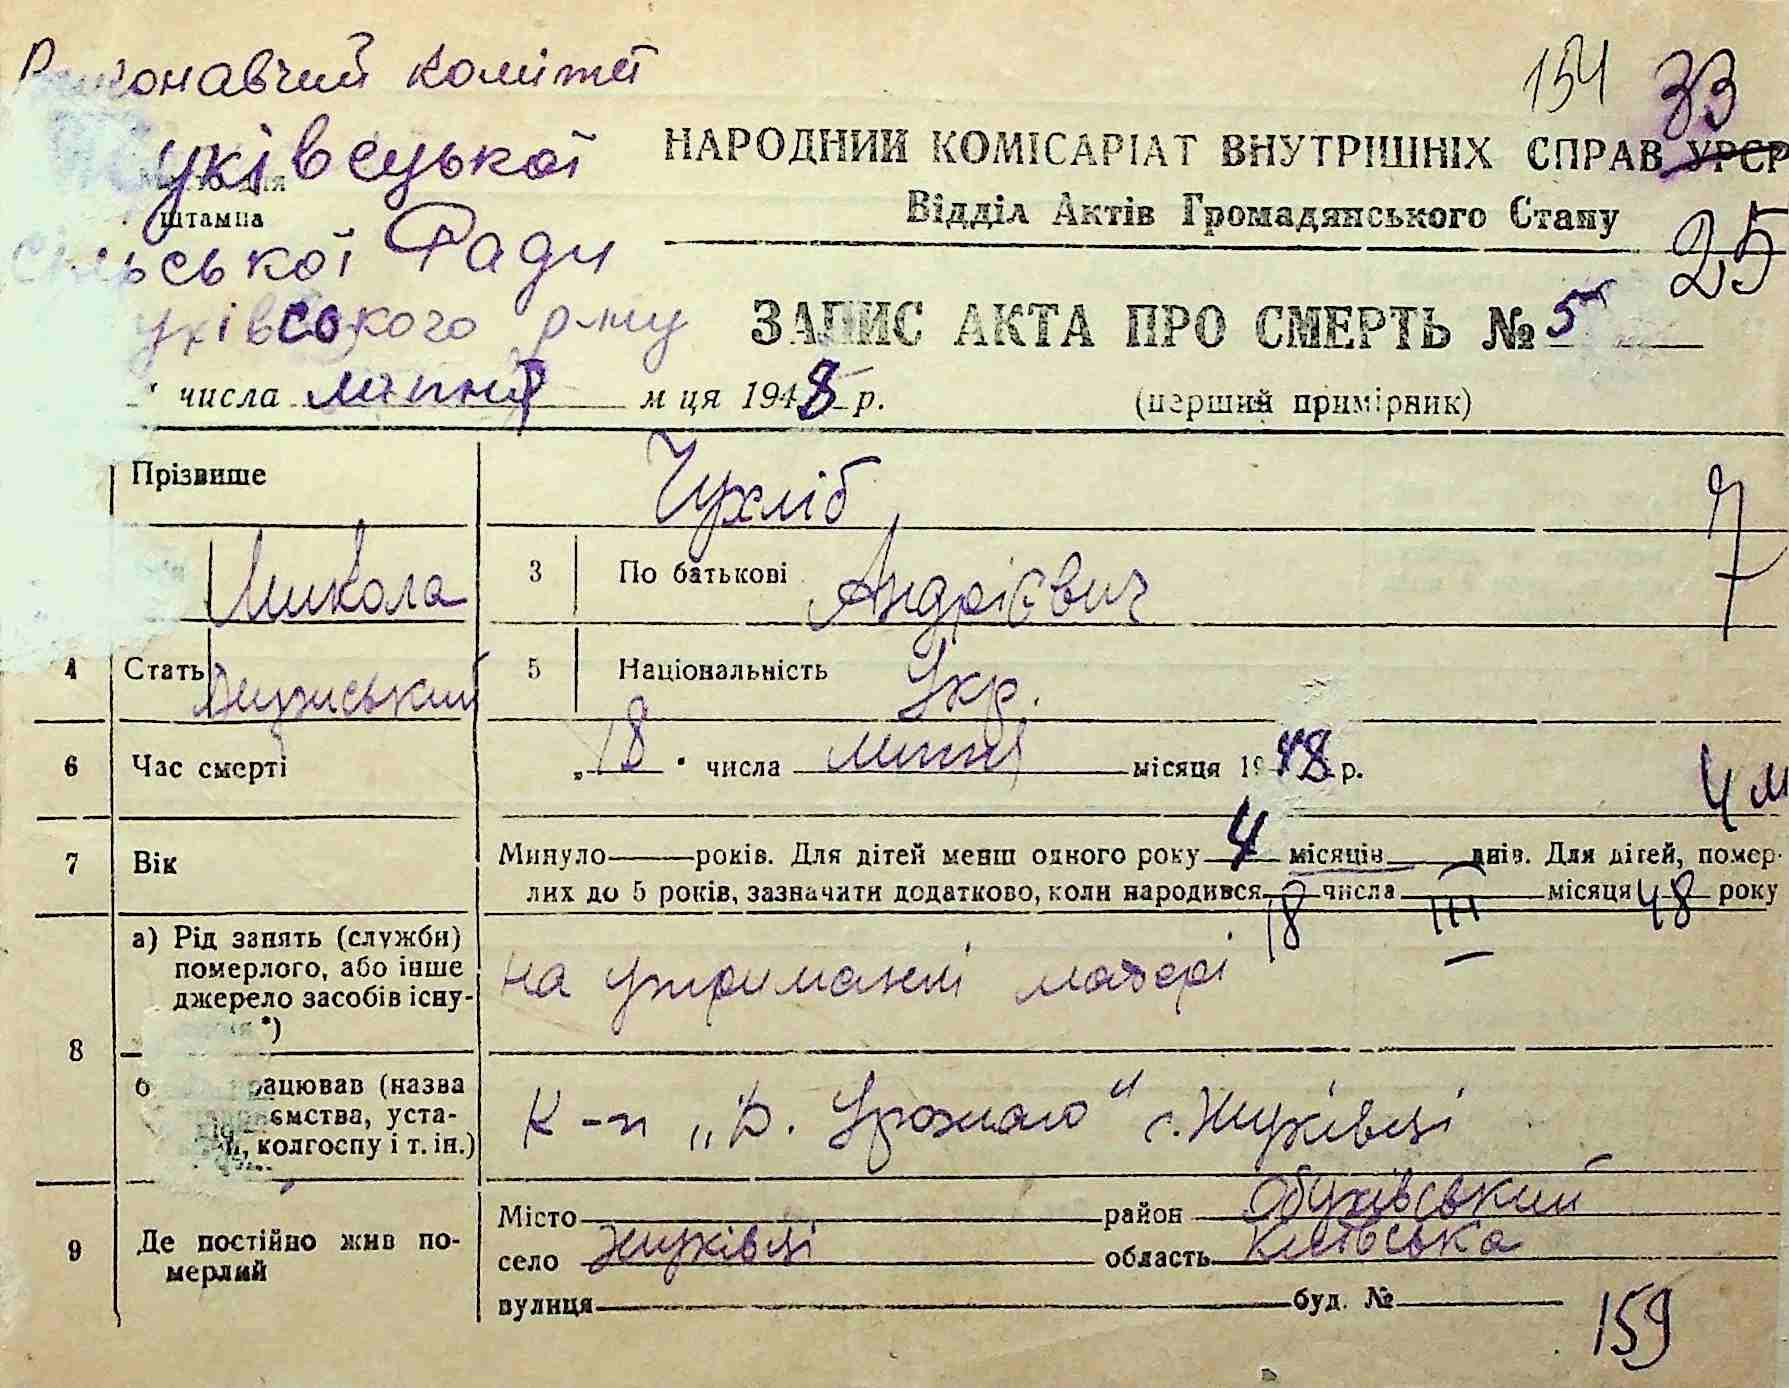 Виконавчий комітет
154 33
уківецької
НАРОДНИЙ КОМІСАРІАТ ВНУТРІШНІХ СПРАВ УРСР
штампа
Відділ Актів Громадянського Стану
сільської Ради
25
ухівського р-ну
ЗАПИС АКТА ПРО СМЕРТЬ № 5
числа липня м ця 1948 р.
(перший примірник)
Прізвище Чухліб
7
Микола 3 По батькові Андрієвич
4 Стать Мужиський 5 Національність Укр.
6 Час смерті „18" числа липня місяця 1948 р.
4 м
7 Вік Минуло років. Для дітей менш одного року 4 місяців днів. Для дітей, помер-
лих до 5 років, зазначити додатково, коли народився 18 числа III місяця 48 року
8 а) Рід занять (служби) померлого, або інше джерело засобів існу- *)
на утриманні матері
б рацював (назва ємства, уста- , колгоспу і т. ін.)
К-п „В. Урожаю" с. Жуківці
9 Де постійно жив по-мерлий
Місто район Обухівський
село Жуківці область Київська
вулиця буд. №
159